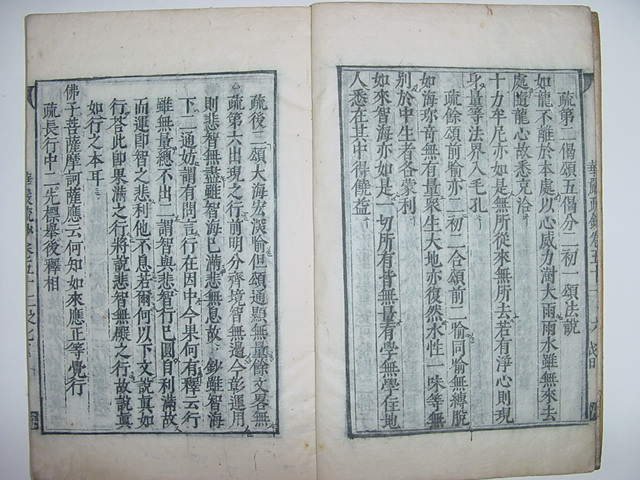 疏第二偈頌五偈分二初一頌法說
如龍不離於本處以心威力澍大雨雨水雖無來去
處隨龍心故悉充洽
十力牟尼亦如是無所從來無所去若有淨心則現
身量等法界入毛孔
疏餘頌前喻亦二初一合頌前二喻同喻無縛脫
如海亦音無有量眾生大地亦復然水性一味等無
別於中生者各蒙利
如來智海亦如是一切所有皆無量有學無學住地
人悉在其中得饒益
華嚴疏鈔卷五十二
疏後二頌大海宏深喻但頌通顯無量餘文畧無
疏第六出現之行前明分齊境智無邊今彰運用
則悲智無盡雖智海已滿悲無息故 鈔雖智海
下二通妨謂有問言行在因中今果何有釋云行
雖無量總不出二謂智與悲智行已圓自利滿故
而運即智之悲利他不息若爾何以下文說真如
行答此即果滿之行將說悲智無礙之行故說真
如行之本耳
佛子菩薩摩訶薩應云何知如來應正等覺行
疏長行中二先標舉後釋相